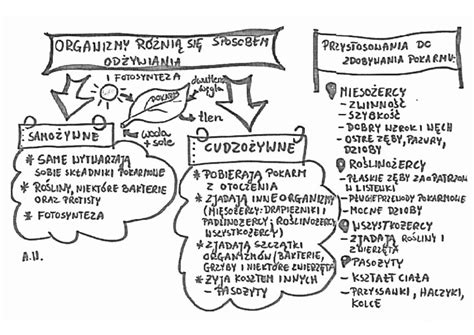 ORGANIZMY RÓŻNIĄ SIĘ SPOSOBEM
ODŻYWIANIA
FOTOSYNTEZA
dwutlenek
węgla
POKARM
tlen
woda
+ sole
SAMOŻYWNE
* SAME WYTWARZAJĄ
SOBIE SKŁADNIKI POKARMOWE
* ROŚLINY, NIEKTÓRE BAKTERIE
ORAZ PROTISTY
* FOTOSYNTEZA
A.U.
CUDZOŻYWNE
* POBIERAJĄ POKARM
Z OTOCZENIA
* ZJADAJĄ INNE ORGANIZMY
(MIĘSOŻERCY: DRAPIEŻNIKI I
PADLINOŻERCY I ROŚLINOŻERCY
WSZYSTKOŻERCY)
* ZJADAJĄ SZCZĄTKI
ORGANIZMÓW (BAKTERIE,
GRZYBY I NIEKTÓRE ZWIERZĘTA)
* ŻYJĄ KOSZTEM INNYCH
- PASOŻYTY
PRZYSTOSOWANIA DO
ZDOBYWANIA POKARMU:
MIĘSOŻERCY
- ZWINNOŚĆ
- SZYBKOŚĆ
- DOBRY WZROK I WĘCH
- OSTRE ZĘBY, PAZURY,
DZIOBY
ROŚLINOŻERCY
- PŁASKIE ZĘBY ZAOPATRZON
W LISTEWKI
- DŁUGIE PRZEWODY POKARMOWE
- MOCNE DZIOBY
WSZYSTKOŻERCY
- ZJADAJĄ ROŚLINY I
ZWIERZĘTA
PASOŻYTY
- KSZTAŁT CIAŁA
- PRZYSSAWKI, HACZYKI,
KOLCE